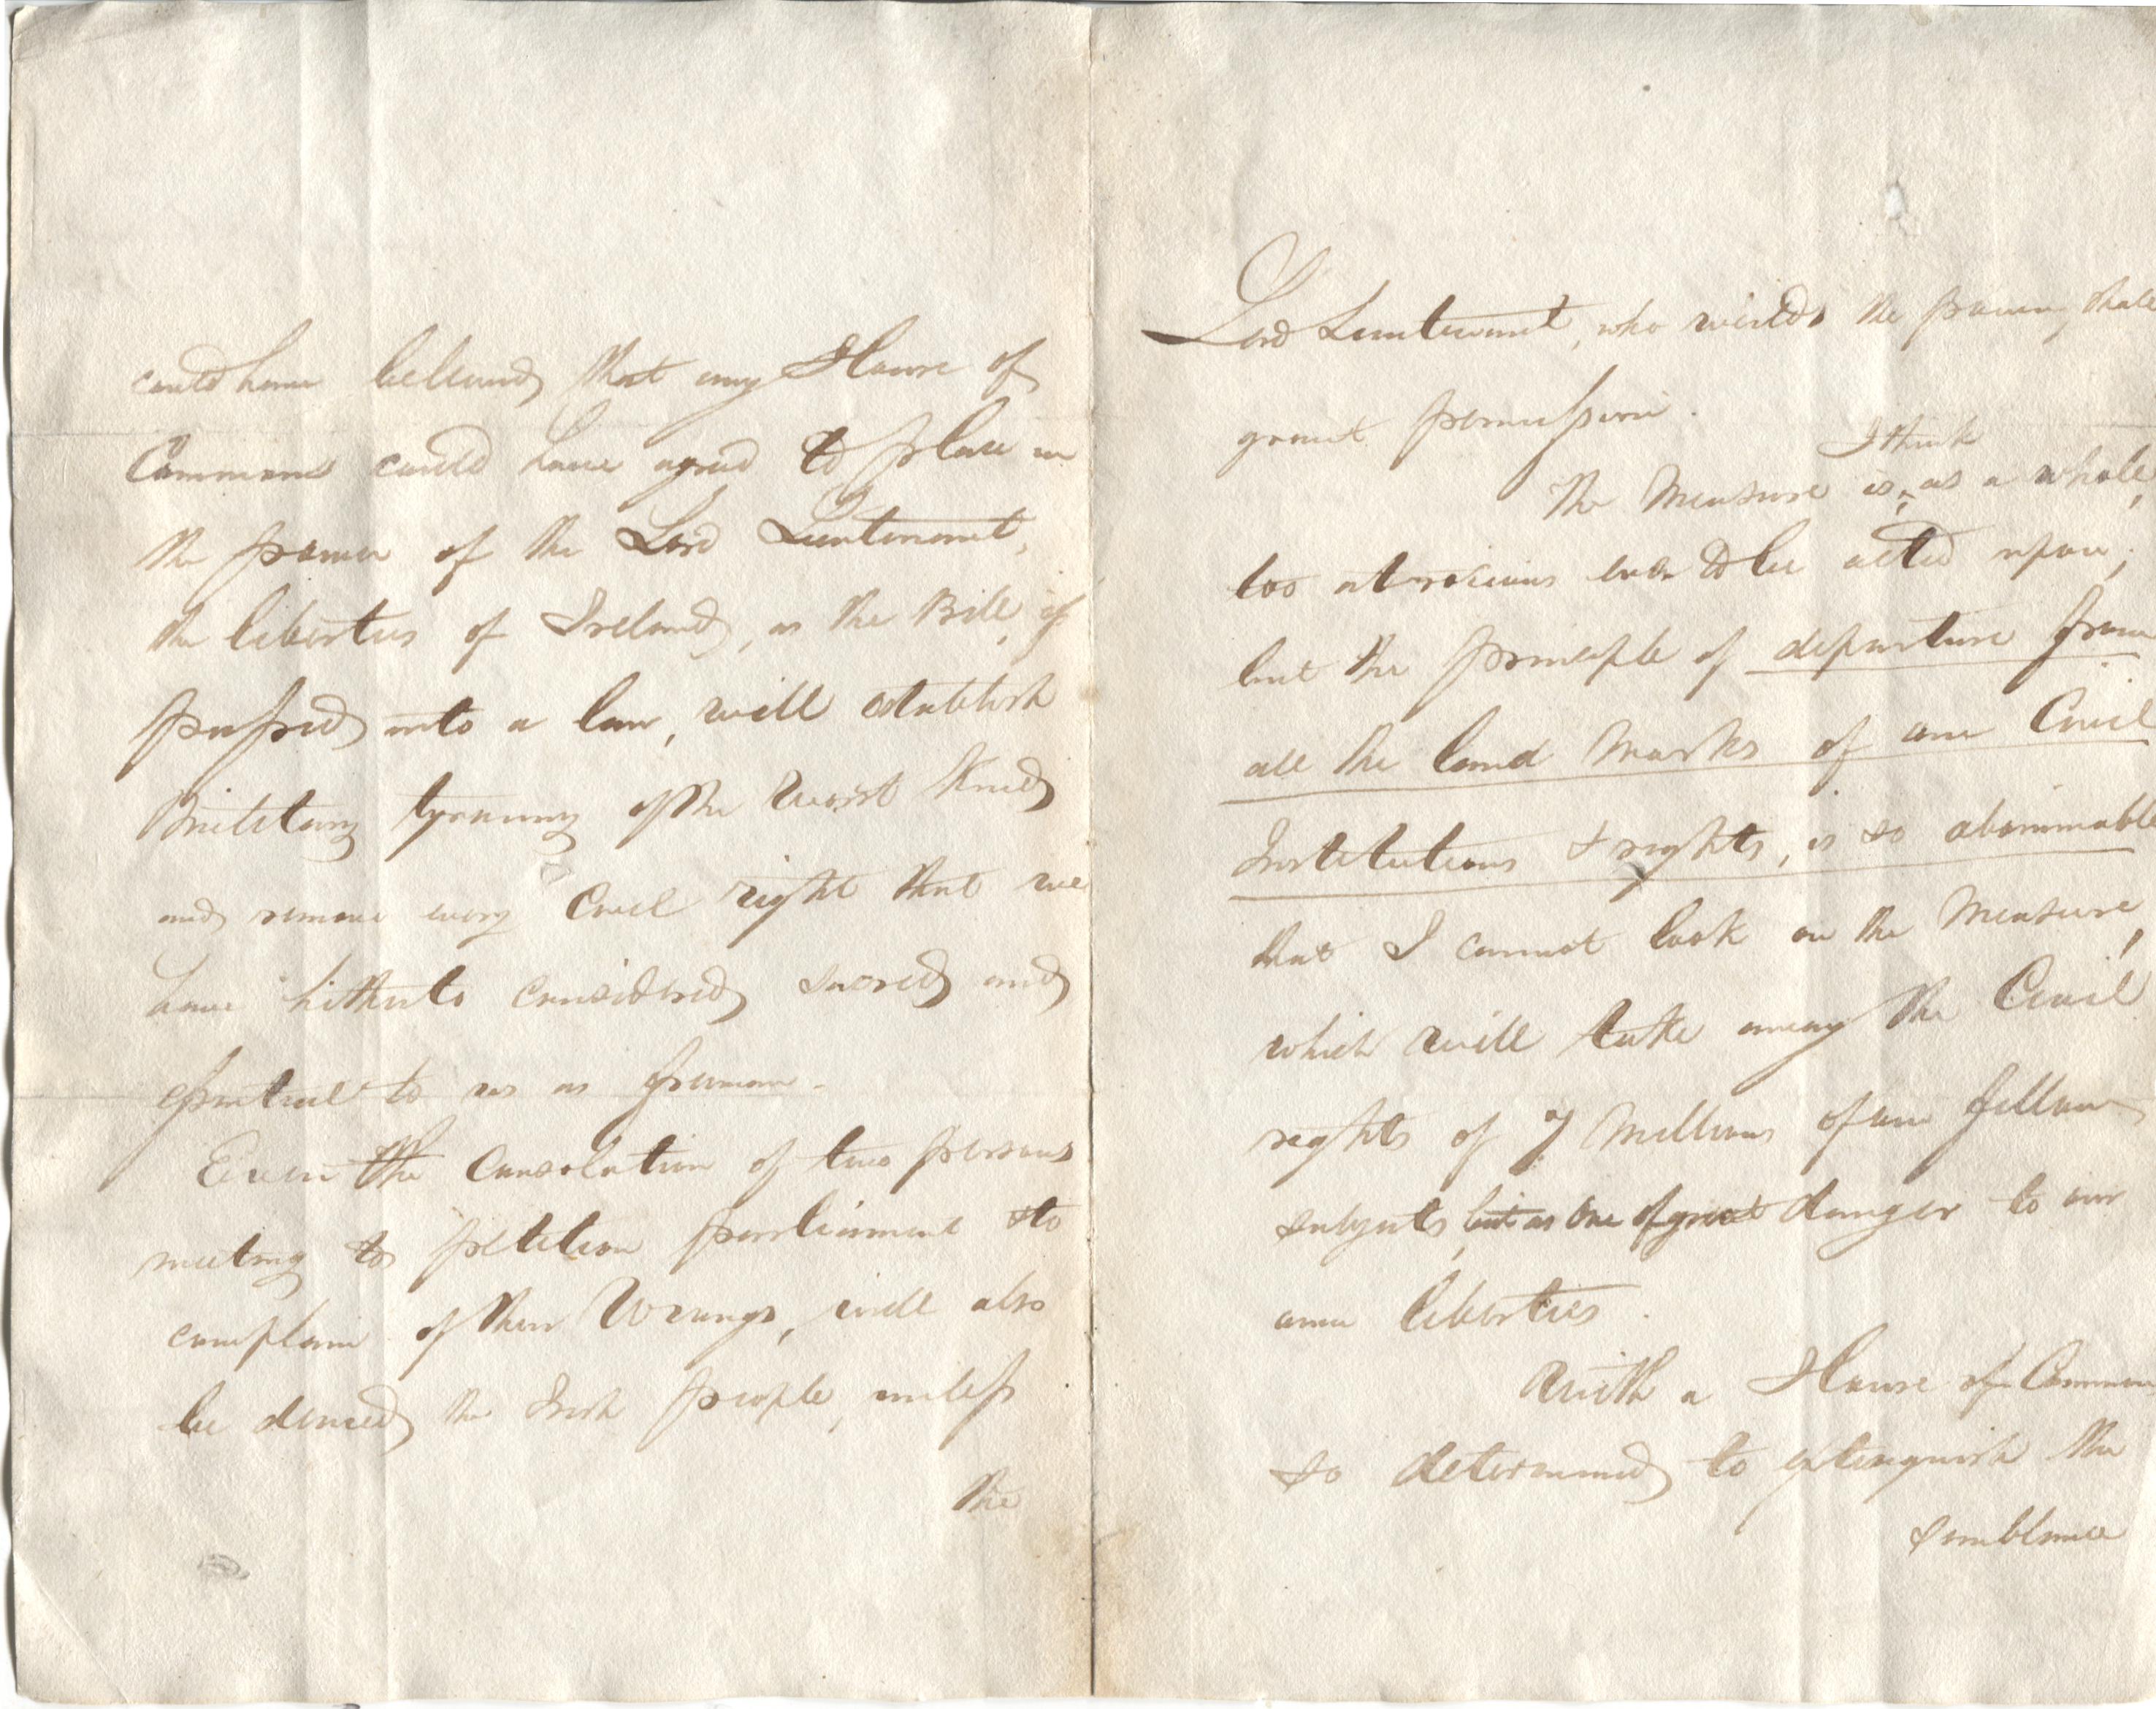 could have believed that any House of
Commons could have agreed to place in
the power of the Lord Lieutenant,
the liberties of Ireland, as the Bill, if
passed into a law, will establish
Military tyranny of the worst kind
and remove every Civil right that we
have hitherto considered sacred and
essential to us as freemen.
Even the Consolation of two persons
meeting to petition parliament & to
complain of their Wrongs, will also
be denied the Irish people, unless
the
Lord Lieutenant, who wields the power, shall
grant permission.
I think
The Measure is, as a whole,
too atrocious ever to be acted upon;
but the principle of departure from
all the land marks of our Civil
Institutions & rights, is so abominable
that I cannot look on the Measure,
which will take away the Civil
rights of 7 Millions of our fellow
subjects, but as one of great danger to our
own liberties.
With a House of Commons
so determined to extinguish the
semblance